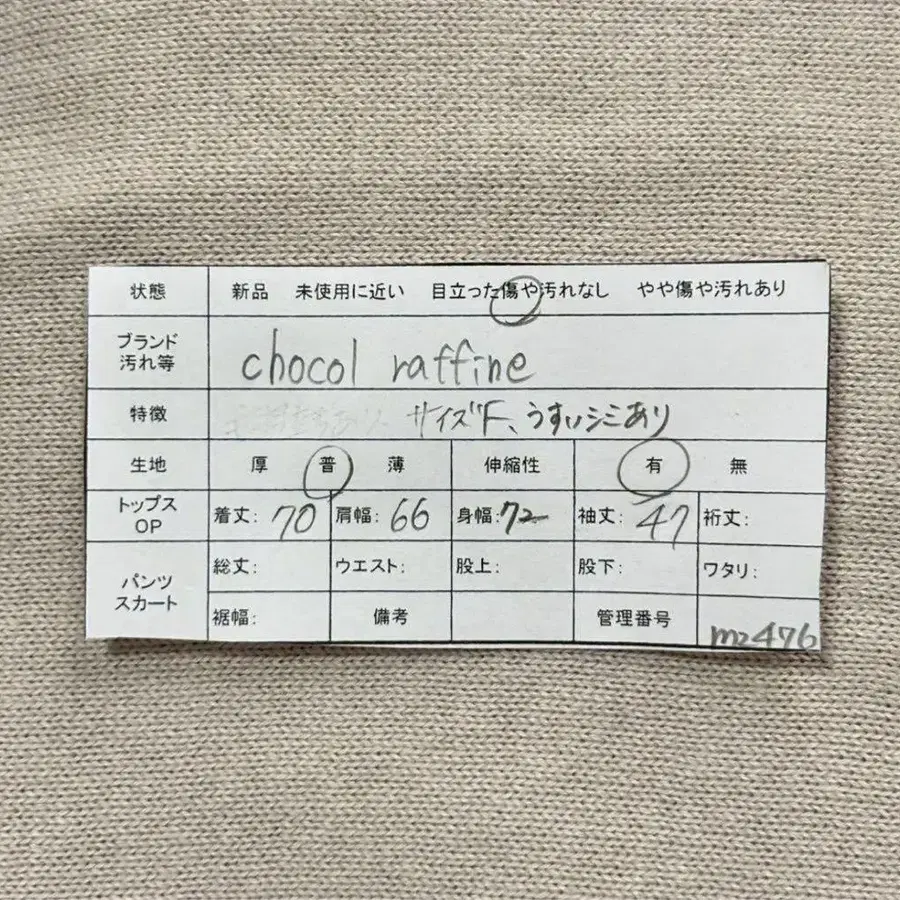 状態 新品 未使用に近い 目立った傷や汚れなし やや傷や汚れあり
ブランド
汚れ等 chocol raffine
特徴 サイズF、うすいシミあり
生地 厚 普 薄 伸縮性 有 無
トップス
OP 着丈: 70 肩幅: 66 身幅: 72 袖丈: 47 裄丈:
パンツ
スカート 総丈: ウエスト: 股上: 股下: ワタリ:
裾幅: 備考 管理番号 m2476